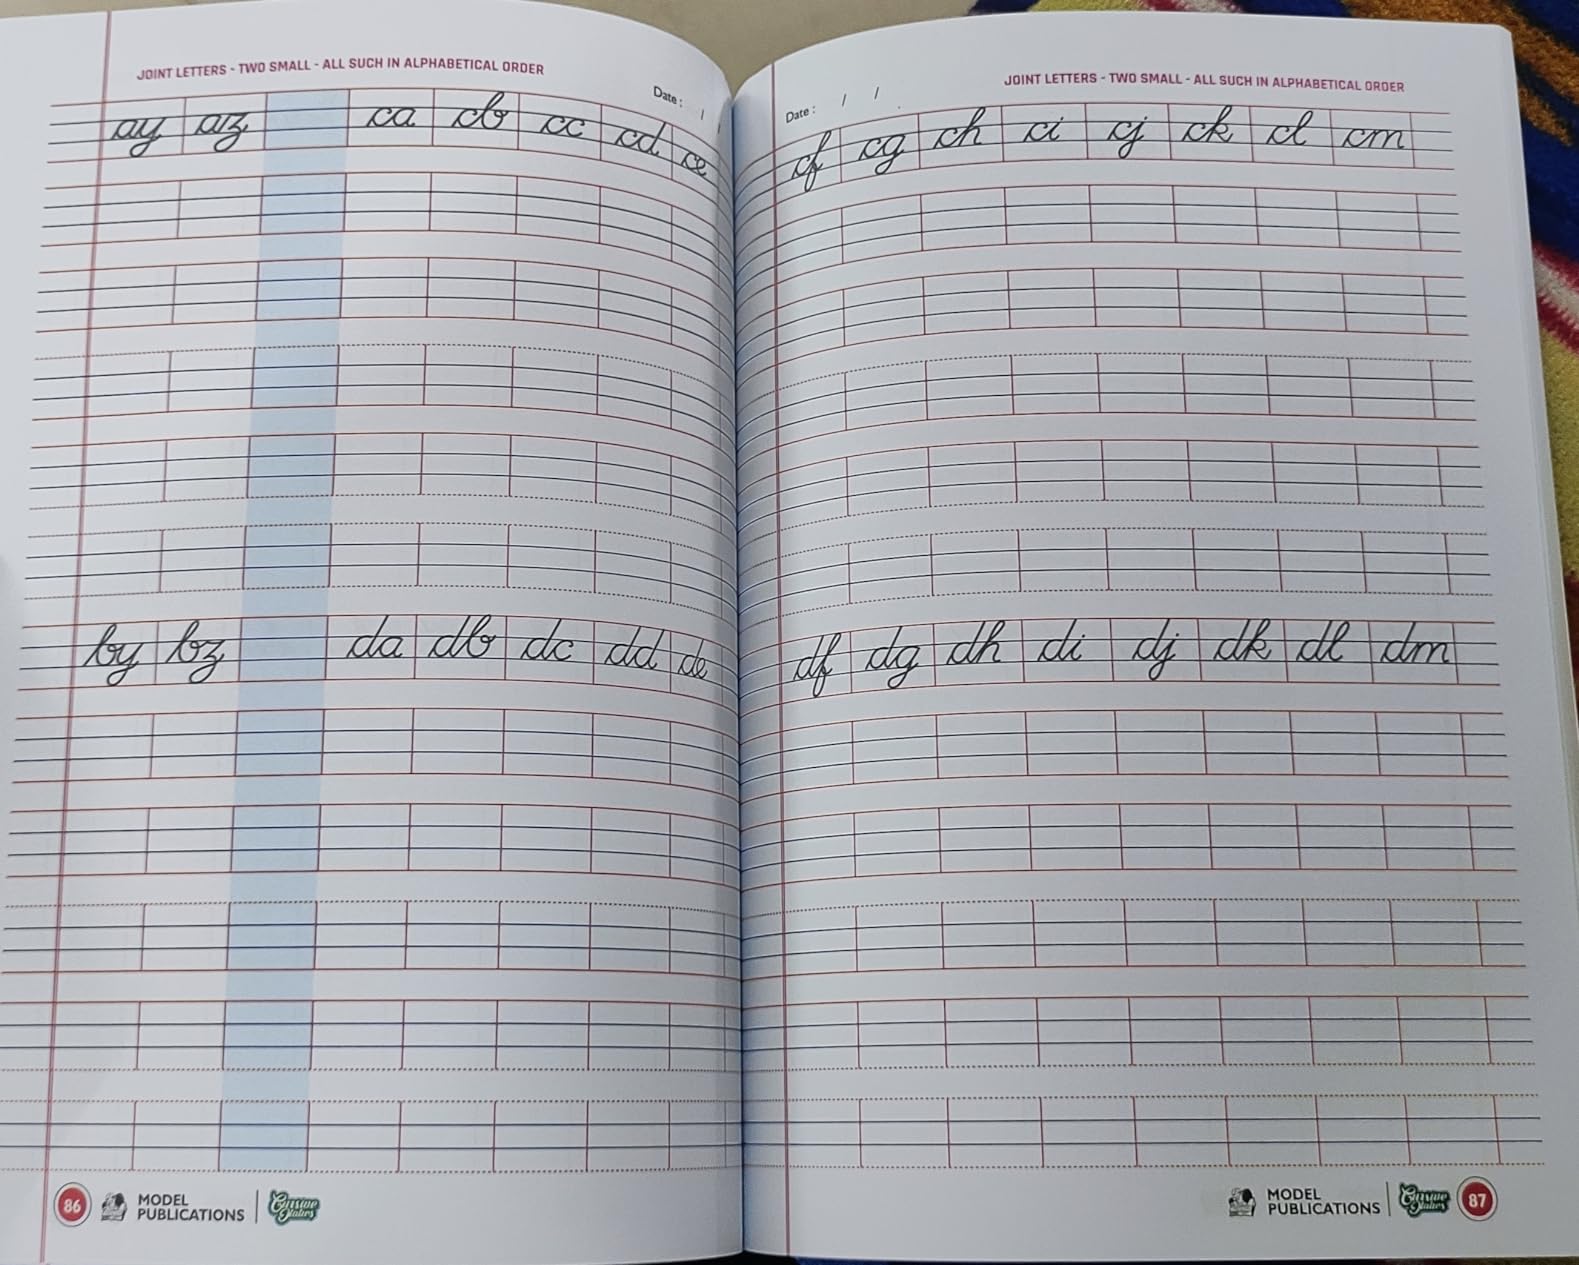 JOINT LETTERS - TWO SMALL - ALL SUCH IN ALPHABETICAL ORDER
Date : /
ay az ca cb cc cd ce
by bz da db dc dd de
86 MODEL PUBLICATIONS Cursive
JOINT LETTERS - TWO SMALL - ALL SUCH IN ALPHABETICAL ORDER
Date : / /
cf cg ch ci cj ck cl cm
df dg dh di dj dk dl dm
MODEL PUBLICATIONS Cursive 87